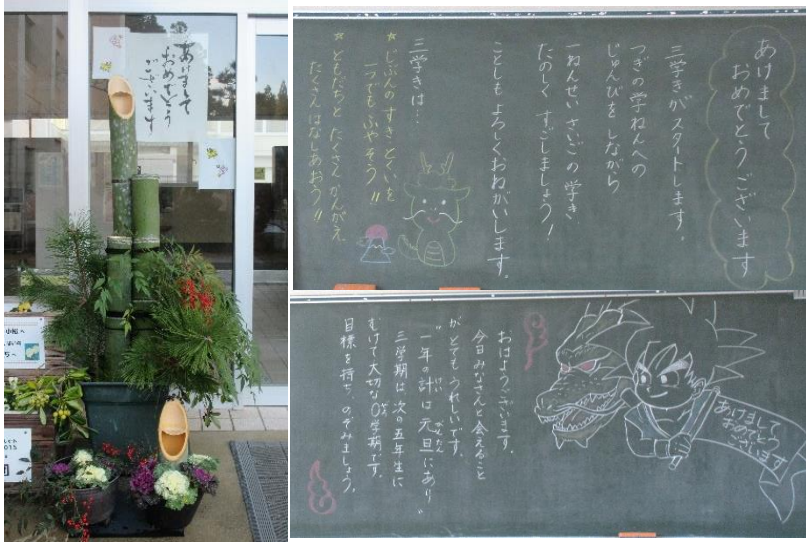 あけまして
おめでとう
ございます
小郡へ
あけまして
おめでとうございます
三学きがスタートします。
つぎの学ねんへの
じゅんびをしながら
一ねんせいさいごの学き
たのしくすごしましょう!
ことしもよろしくおねがいします。
三学きは…
★じぶんのすきとくいを
一つでもふやそう!!
★ともだちとたくさんかんがえ
たくさんはなしあおう!!
おはようございます。
今日みなさんと会えること
がとてもうれしいです。
"一年の計は元旦にあり"
けい
がんたん
三学期は次の五年生に
むけて大切な0学期です。
目標を持ち、のぞみましょう。
あけまして
おめでとう
ございます